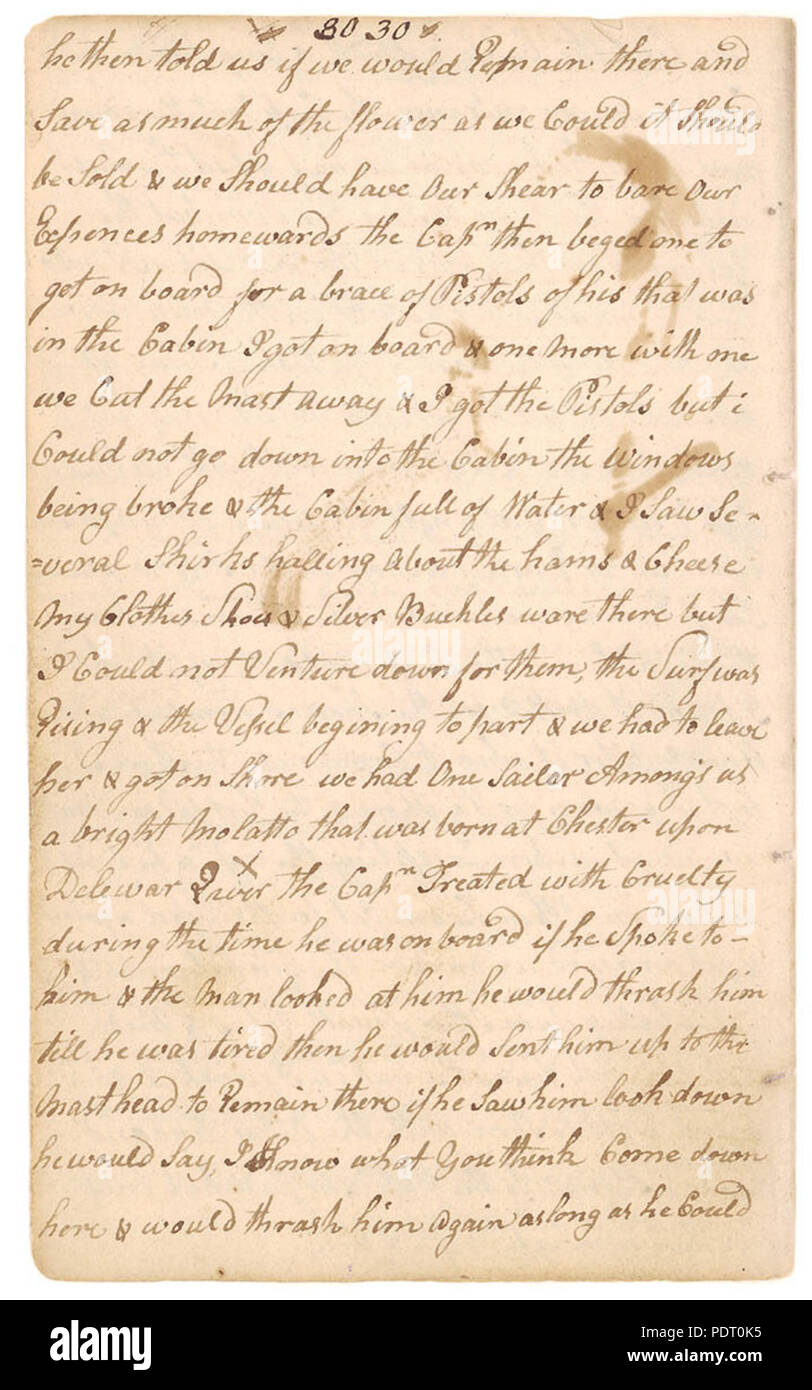 30 30
he then told us if we would Remain there and
Save as much of the flower as we Could it Should
be Sold & we Should have Our Shear to bare Our
Expences homewards the Capn then beged one to
got on board for a brace of Pistols of his that was
in the Cabin I got on board & one more with me
we Cut the Mast away & I got the Pistols but i
Could not go down into the Cabin the Windows
being broke & the Cabin full of Water & I Saw Se-
=veral Shirks halling About the hams & Cheese
My Clothes Shous & Silver Buckles ware there but
I Could not Venture down for them, the Surf was
Rising & the Vessel begining to part & we had to leave
her & got on Shore we had One Sailor Among's us
a bright Molatto that was born at Chester upon
Delewar River the Capn Treated with Cruelty
during the time he was on board if he Spoke to-
him & the Man looked at him he would thrash him
till he was tired then he would Sent him up to the
Mast head to Remain there if he Saw him look down
he would Say, I know what You think Come down
here & would thrash him again as long as he Could
alamy
Image ID: PDT0K5
www.alamy.com